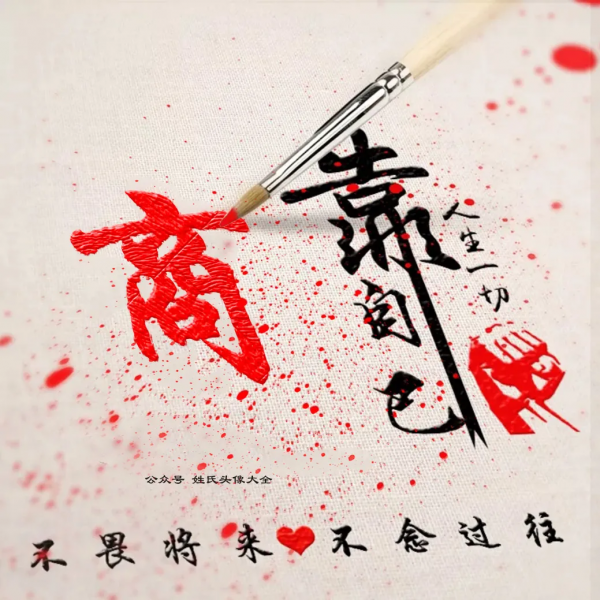 商
靠自己
人生一切
公众号 姓氏头像大全
不畏将来不念过往